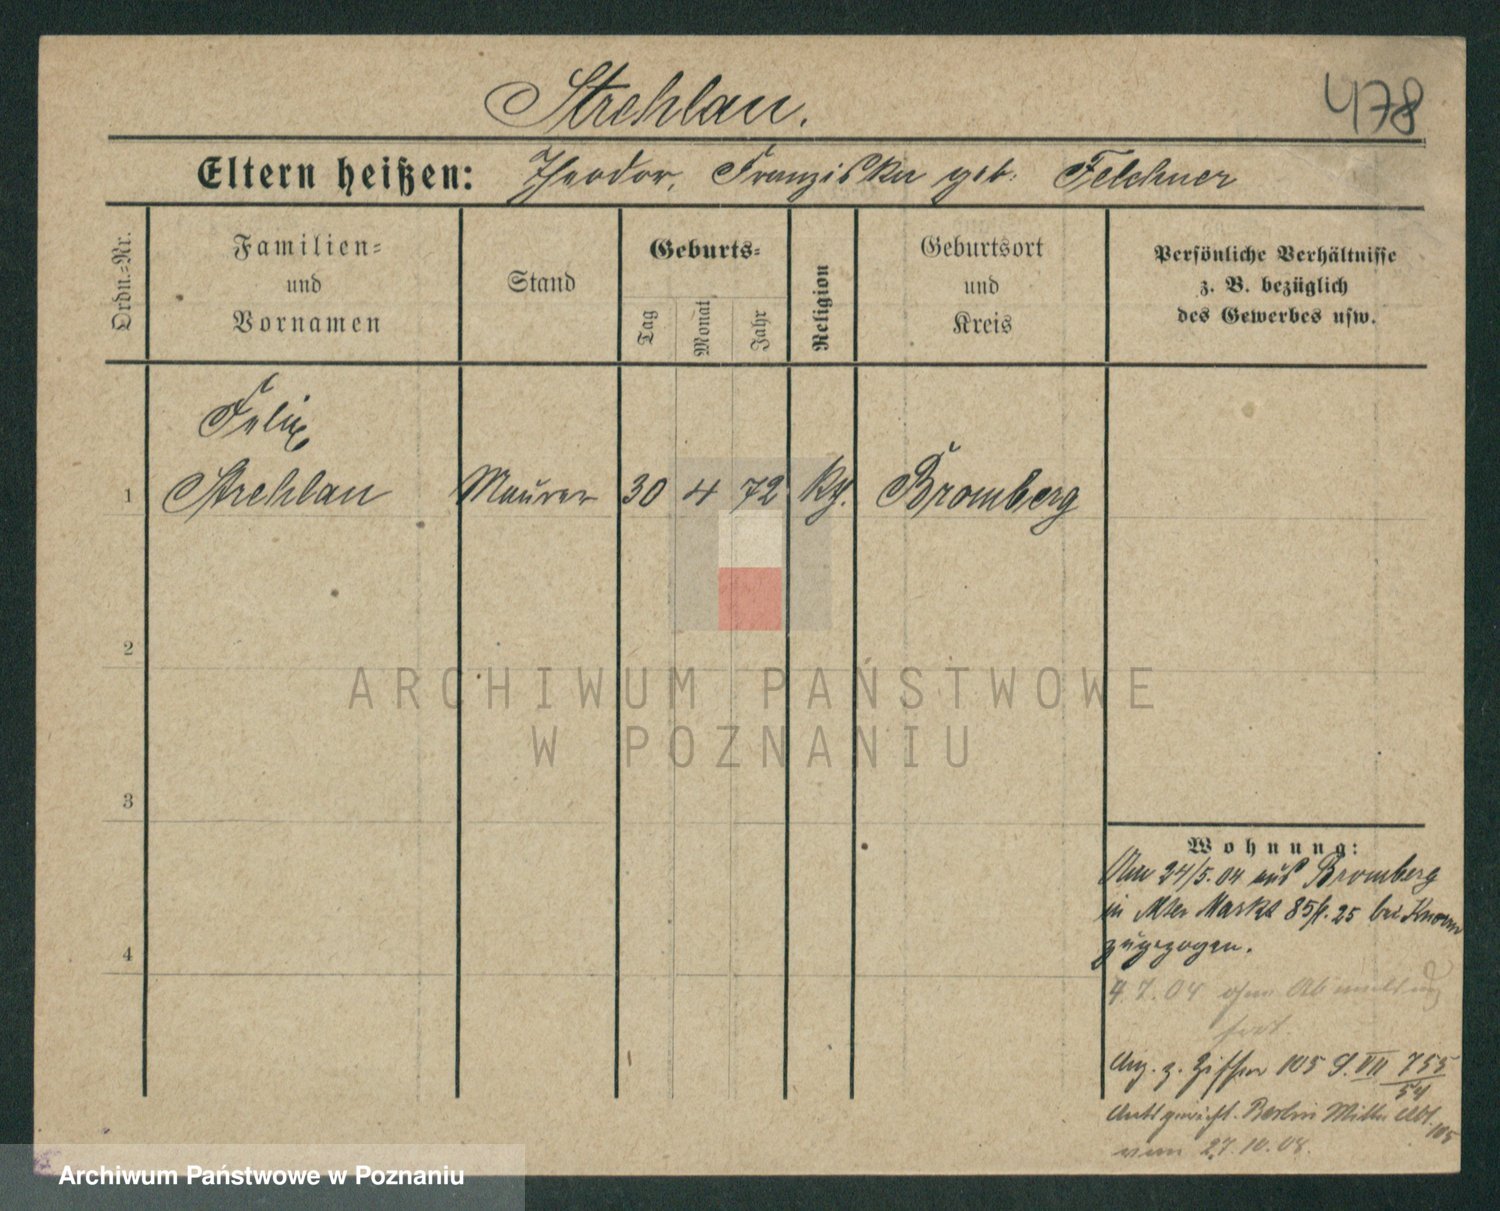 Strehlau.
478
Eltern heißen: Theodor, Franziska geb. Felchner
Ordn.=Nr.
Familien=
und
Vornamen
Stand
Geburts=
Tag
Monat
Jahr
Religion
Geburtsort
und
Kreis
Persönliche Verhältnisse
z. B. bezüglich
des Gewerbes usw.
Felix
1 Strehlau Maurer 30 4 72 Bromberg
2
3
4
ARCHIWUM PAŃSTWOWE
W POZNANIU
Wohnung:
24/5.04 aus Bromberg
in Alter Markt 85 25 bei
zugezogen.
4.7.04 ohne Abmeldung
fort.
z. Ziffer 105 VII 755
54
Amtsgericht. Berlin Mitte Abt. 105
vom 27.10.08.
Archiwum Państwowe w Poznaniu